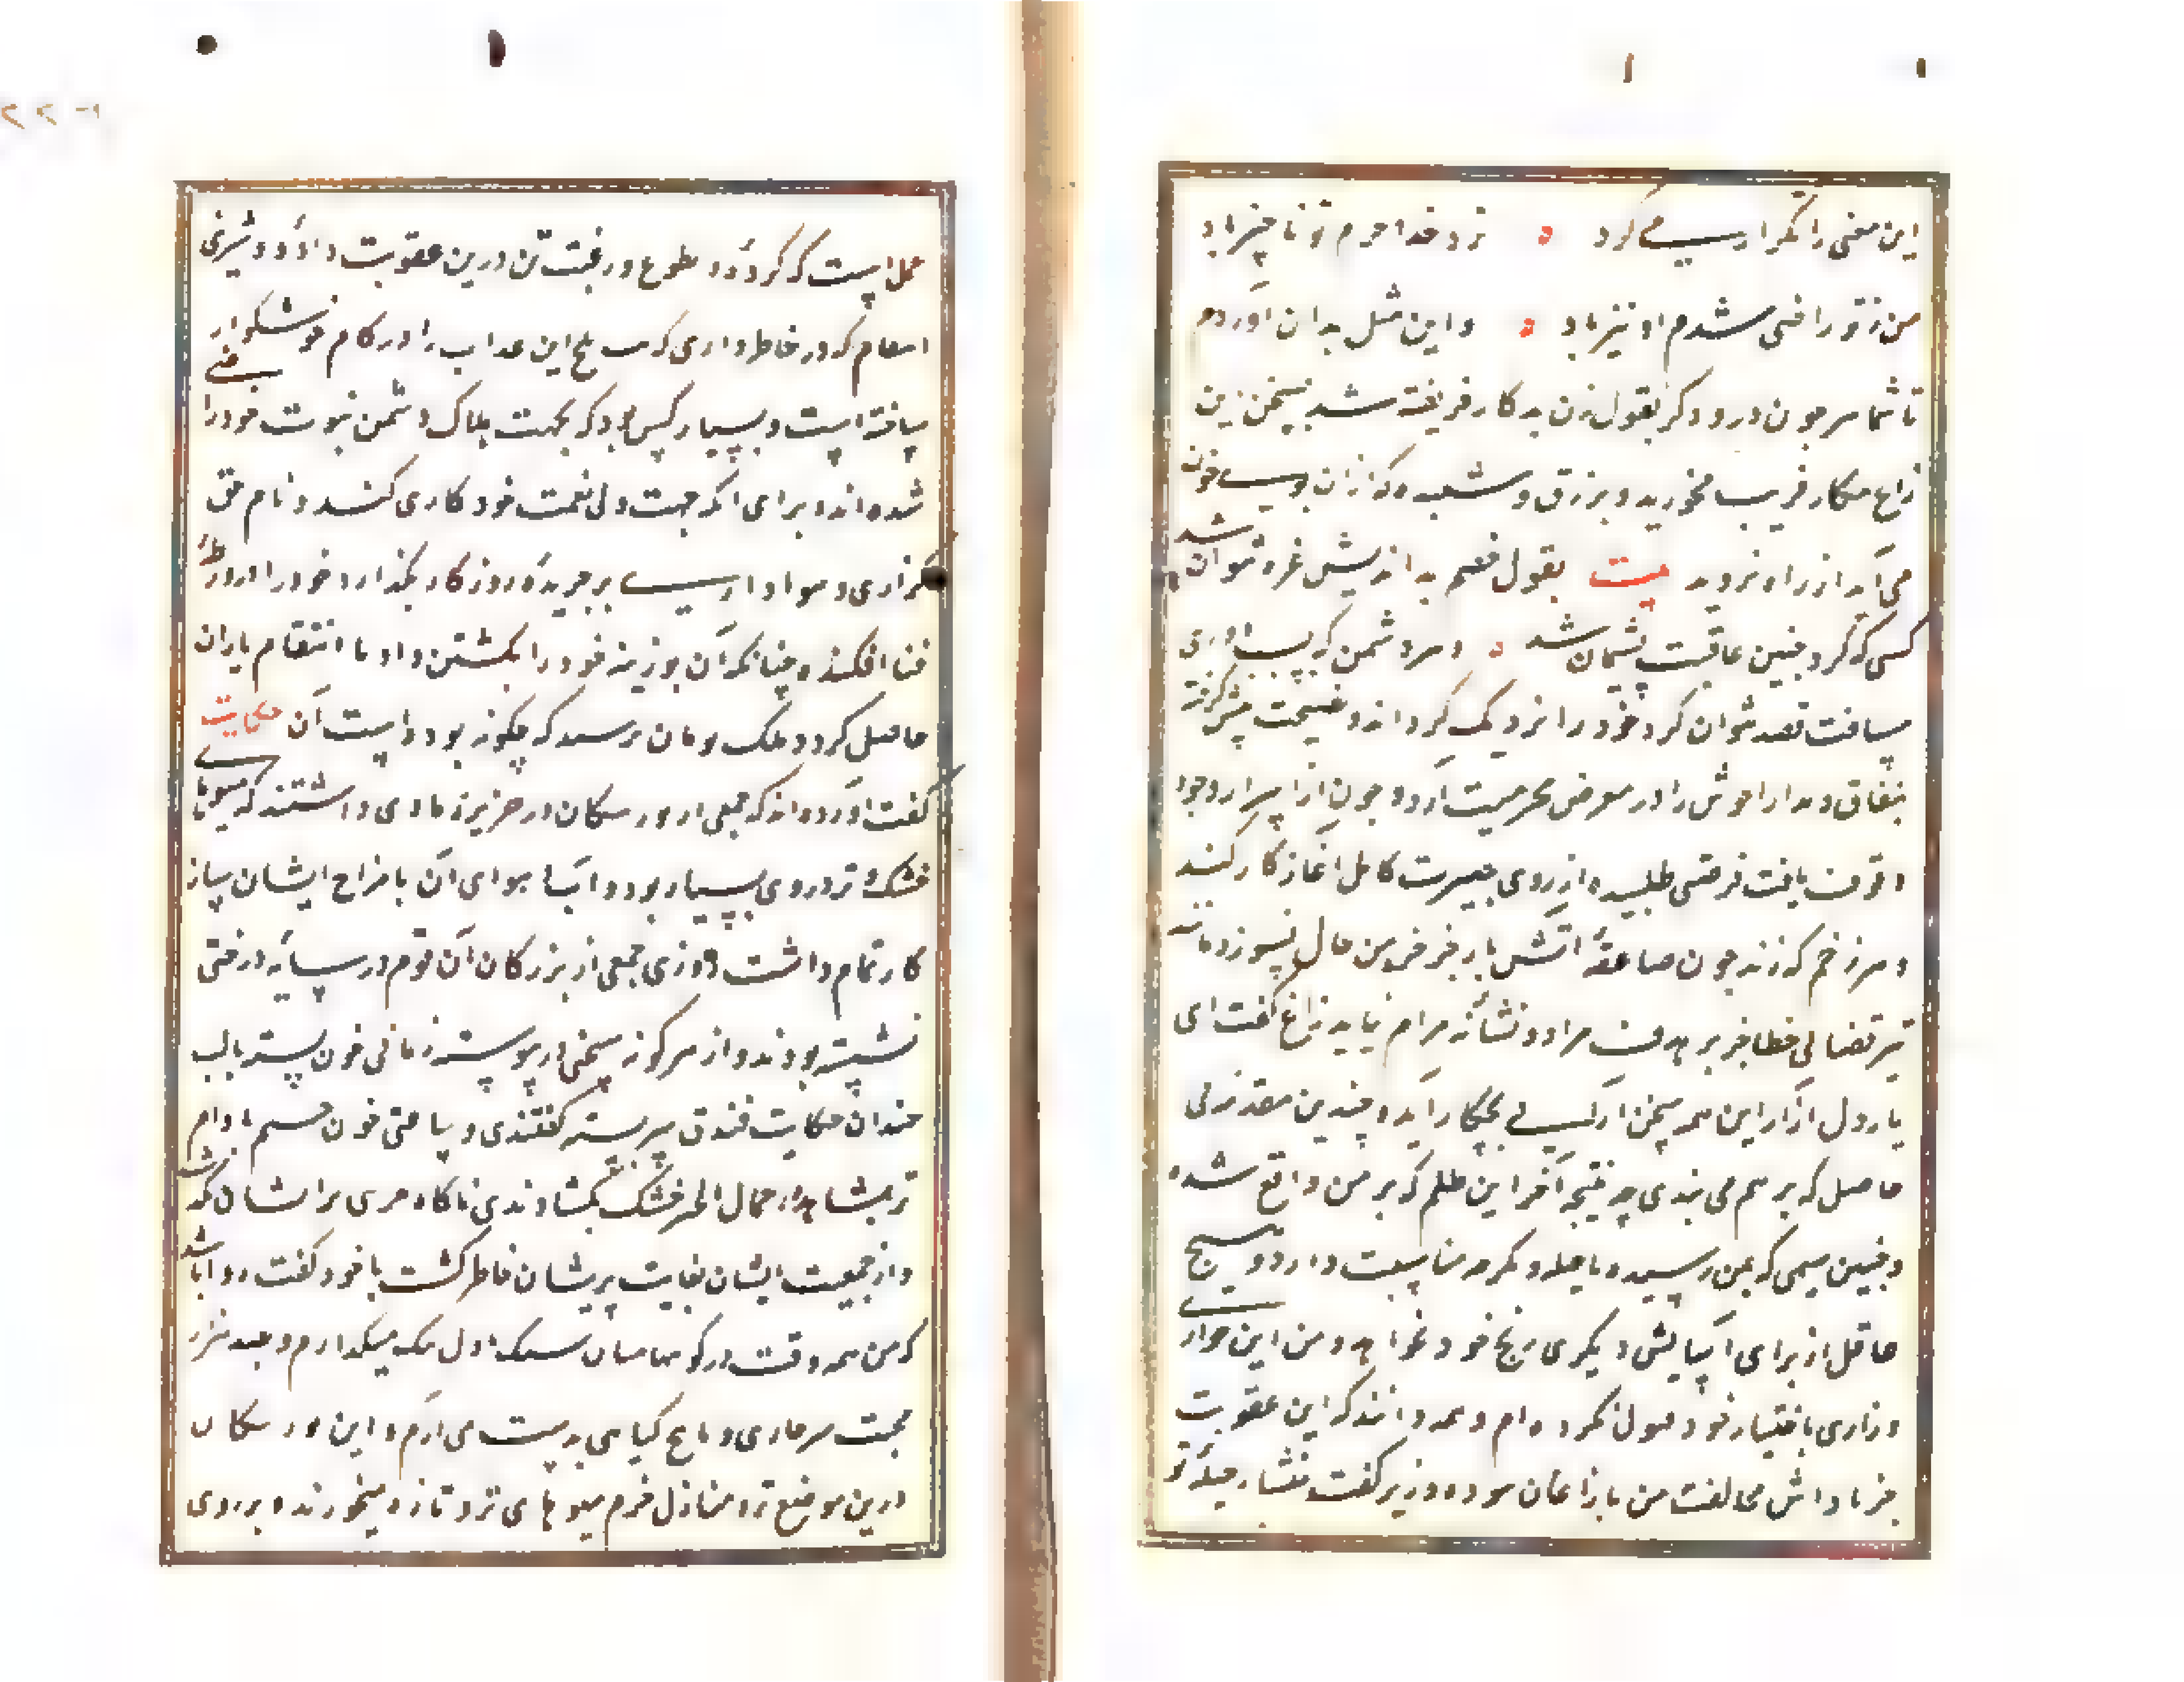 این معنی را تکرار می کرد ه نزد خدا جرم تو ناچیز باد
من ز تو راضی شدم او نیز باد ه و این مثل بدان آوردم
تا شما همچون درودگر بقول زن بدکار فریفته شد بسخن این
زاغ مکار فریب مخورید و بزرق و شعبده که ازان بوی خون
می آید از راه نروید بیت بقول خصم بداندیش غره نتوان شد
کسی که کرد چنین عاقبت پشیمان شد ه و هر دشمن که بسبب دوری
مسافت قصد نتوان کرد خود را نزدیک گرداند و نصیحت پیش گرفته
بنفاق و مدارا خویش را در معرض محرمیت آرد و چون از اسرار وجود
وقوف یافت فرصتی طلبیده از روی بصیرت کامل آغاز کار کند
و هر زخم که زند چون صاعقه آتش بار جز خرمن حال نسوزد و مانند
تیر قضا بی خطا جز بر هدف مراد و نشانه مرام نیاید زاغ گفت ای
یار دل آزار این همه سخن آرایی بچکار آید و چندین مقدمه بی
حاصل که برهم می بندی چه نتیجه آخر این ظلم که بر من واقع شده
و چنین ستمی که بمن رسیده با حیله و مکر چه مناسبت دارد و هیچ
عاقل از برای آسایش دیگری رنج خود نخواهد و من این خواری
و زاری باختیار خود قبول نکرده ام و همه دانند که این عقوبت
جز پاداش مخالفت من با زاغان نبوده وزیر گفت منشاء حیله تو
عمل است که کرده و بطوع و رغبت تن درین عقوبت داده و شیرینی
انتقام که در خاطر داری که تلخ این عذاب را در کام خوشگوار
ساخته است و بسیار کس بود که بجهت هلاک دشمن بموت خود راضی
شده اند و برای آنکه جهت ولی نعمت خود کاری کنند و نام حق
گزاری و هواداری بر جریده روزگار بگذارد خود را در ورطه
فنا افکنند چنانکه آن بوزینه خود را بکشتن داد تا انتقام یاران
حاصل کرد و ملک بومان پرسید که چگونه بوده است آن حکایت
گفت آورده اند که جمعی از بوزنیگان در جزیره ماوی داشتند که میوهای
خشک و تر در وی بسیار بود و آب و هوای آن با مزاج ایشان ساز
کار تمام داشت روزی جمعی از بزرگان آن قوم در سایه درختی
نشسته بودند و از هر گونه سخنی در پیوسته زمانی چون پسته بالب
خندان حکایت فندق سربسته گفتندی و ساعتی چون چشم بادام
تر بمشاهده جمال انجیر خشک نگشادندی ناگاه خرسی بر ایشان گذشت
و از جمعیت ایشان بغایت پریشان خاطر گشت با خود گفت روا باشد
که من همه وقت در کوهستان سنگ دل تنگ میگذارم و بصد هزار
محنت سر خاری و بیخ گیاهی بدست می آرم و این بوزنیگان
درین موضع نزه و منازل خرم میوهای تر و تازه میخورند و بر روی